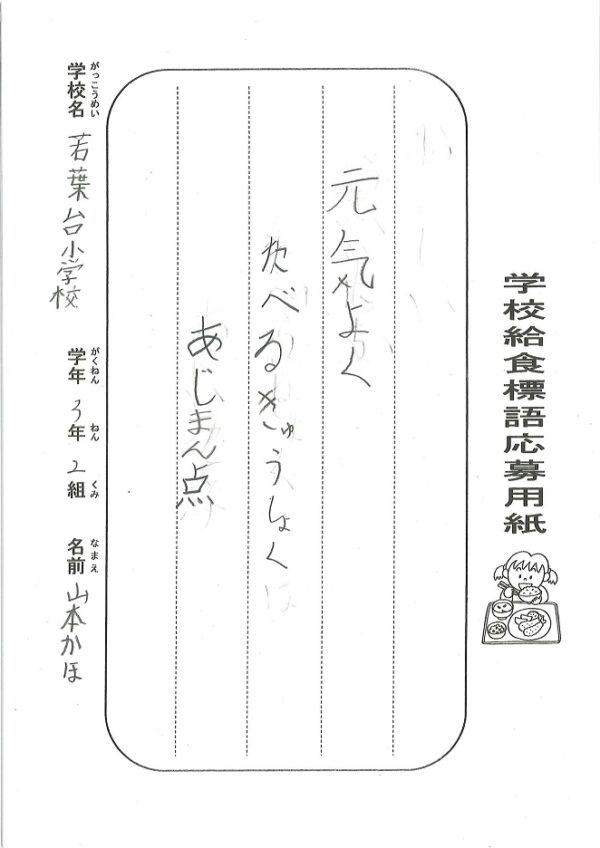 学校給食標語応募用紙
元気よく
たべるきゅうしょく
あじまん点
がっこうめい がくねん ねん くみ なまえ
学校名 若葉台小学校 学年 3年 2組 名前 山本かほ